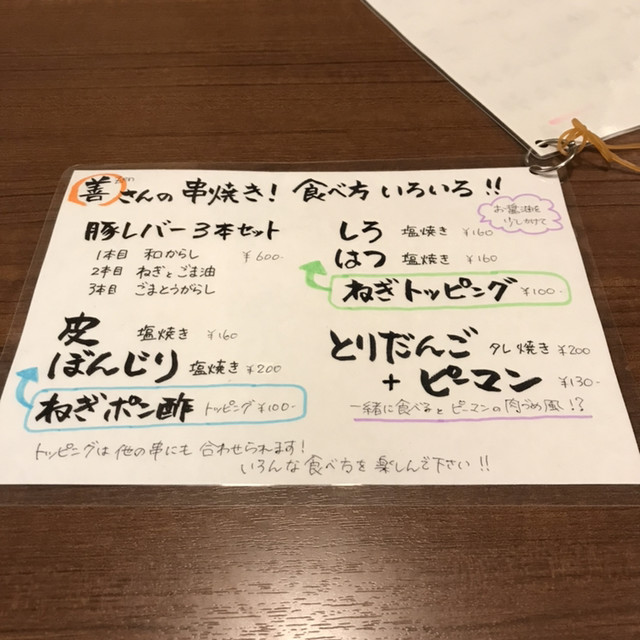 善さんの 串焼き! 食べ方 いろいろ!!
Zen
豚レバー 3本セット
1本目 和からし ¥600-
2本目 ねぎとごま油
3本目 ごまとうがらし
しろ 塩焼き ¥160
お醤油を
少しかけて
はつ 塩焼き ¥160
ねぎトッピング ¥100-
皮 塩焼き ¥160
ぼんじり 塩焼き ¥200
ねぎポン酢 トッピング ¥100-
とりだんご タレ焼き ¥200
+ ピーマン ¥130-
一緒に食べると ピーマンの肉づめ風!?
トッピングは 他の串にも 合わせられます!
いろんな食べ方を 楽しんで下さい!!